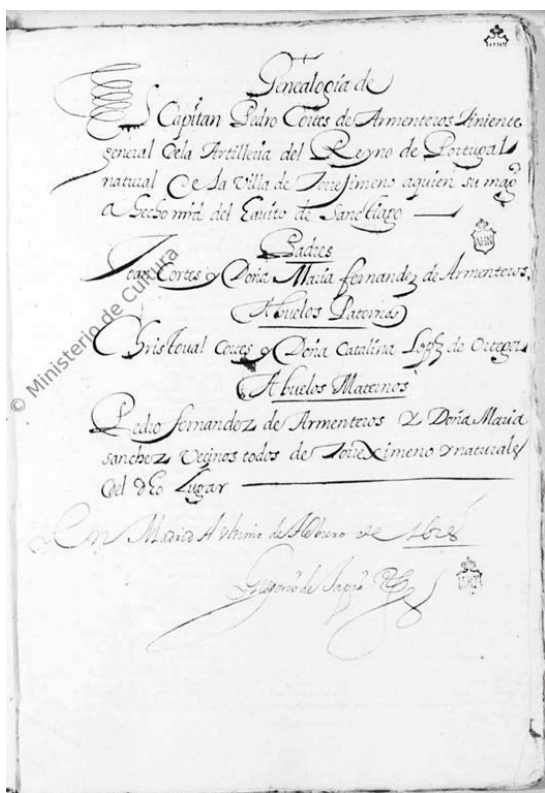 Genealogía de
El Capitan Pedro Cortes de Armenteros Tiniente
general de la Artilleria del Reyno de Portugal
natural de la Villa de Torreximeno aquien su magd
a hecho mrd del Auito de Sanctiago
Padres
Joan Cortes y Doña María fernandez de Armenteros
Abuelos Paternos
Christoual Cortes y Doña Catalina Lopz de Ortega
Abuelos Maternos
Pedro fernandez de Armenteros y Doña María
sanchez Vecinos todos de Torreximeno y naturales
del dho Lugar
En Madrid A vltimo de Hebrero de
Gregorio de Tapia
© Ministerio de Cultura
AHN